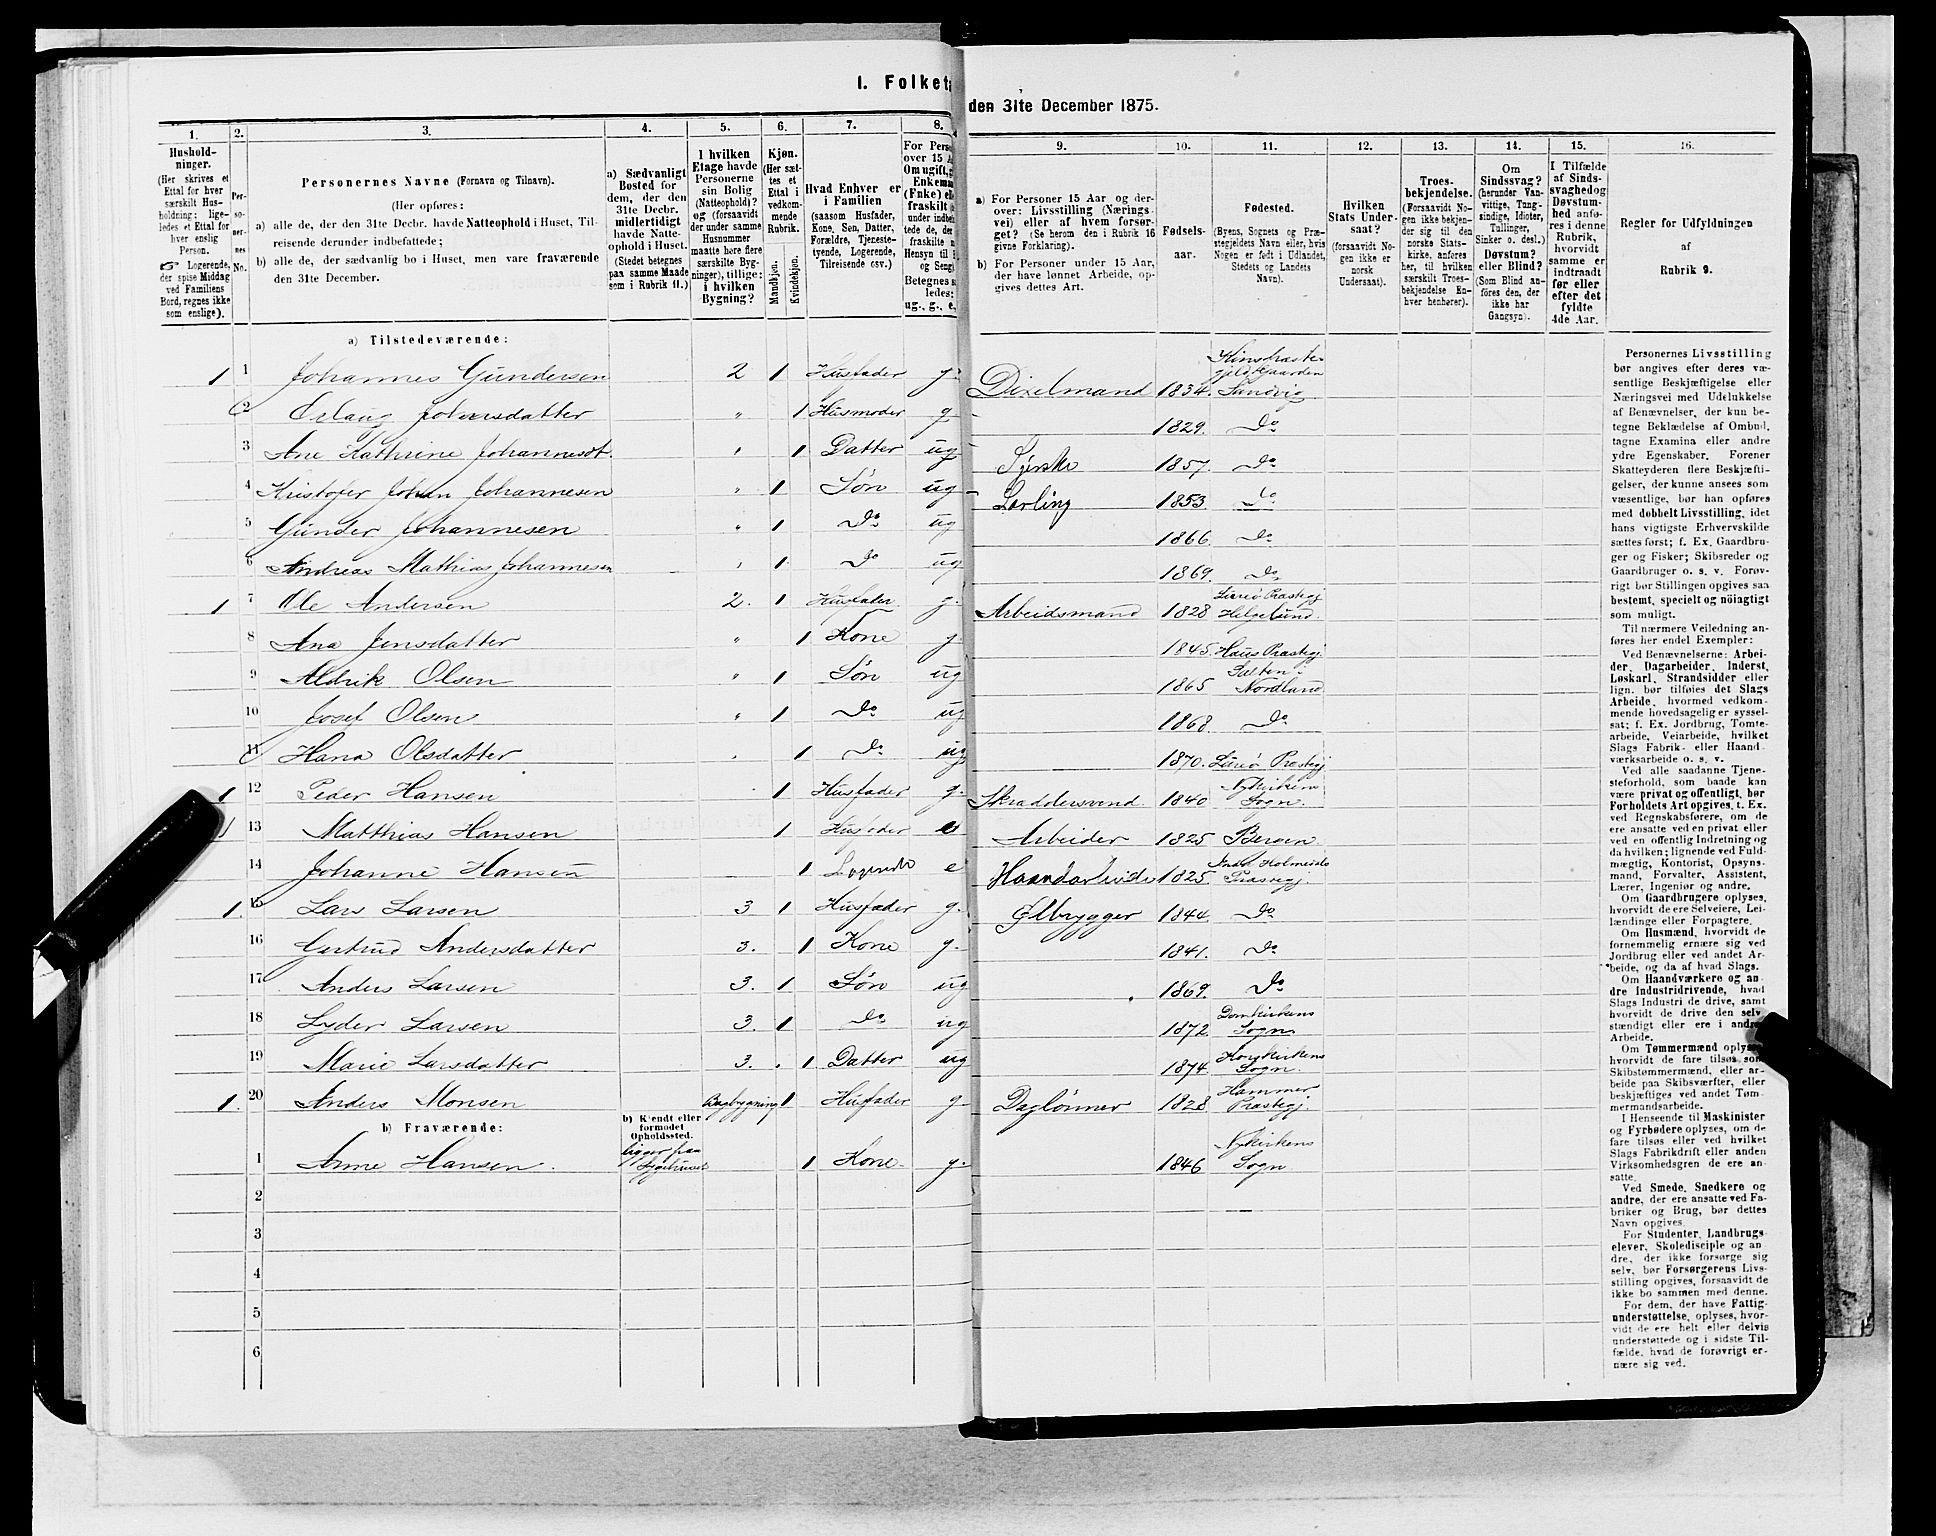 I. Folketæ
den 31te December 1875.
1.
Hushold-
ninger.
(Her skrives et
Ettal for hver
særskilt Hus-
holdning; lige-
ledes et Ettal for
hver enslig
Person.
☞ Logerende,
der spise Middag
ved Familiens
Bord, regnes ikke
som enslige).
2.
Per-
so-
ner-
nes
No.
3.
Personernes Navne (Fornavn og Tilnavn).
(Her opføres:
a) alle de, der den 31te Decbr. havde Natteophold i Huset, Til-
reisende derunder indbefattede;
b) alle de, der sædvanlig bo i Huset, men vare fraværende
den 31te December.
4.
a) Sædvanligt
Bosted for
dem, der den
31te Decbr.
midlertidigt
havde Natte-
ophold i Huset.
(Stedet betegnes
paa samme Maade
som i Rubrik 11.)
5.
I hvilken
Etage havde
Personerne
sin Bolig
(Natteophold)?
og (forsaavidt
der under samme
Husnummer
maatte høre flere
særskilte Byg-
ninger), tillige:
i hvilken
Bygning?
6.
Kjøn.
(Her sæt-
tes et
Ettal i
vedkom-
mende
Rubrik.
Mandkjøn.
Kvindekjøn.
7.
Hvad Enhver er
i Familien
(saasom Husfader,
Kone, Søn, Datter,
Forældre, Tjeneste-
tyende, Logerende,
Tilreisende osv.)
8.
For Perso
over 15 A
Om ugift, g
Enkema
(Enke) el
fraskilt
under indbe
tede de, der
fraskilte
Hensyn til
og Seng)
Betegnes s
ledes:
ug., g., e,
9.
a) For Personer 15 Aar og der-
over: Livsstilling (Nærings-
vei) eller af hvem forsør-
get? (Se herom den i Rubrik 16
givne Forklaring).
b) For Personer under 15 Aar,
der have lønnet Arbeide, op-
gives dettes Art.
10.
Fødsels-
aar.
11.
Fødested.
(Byens, Sognets og Præ-
stegjeldets Navn eller, hvis
Nogen er født i Udlandet,
Stedets og Landets
Navn).
12.
Hvilken
Stats Under-
saat?
(forsaavidt No-
gen ikke er
norsk
Undersaat).
13.
Troes-
bekjendelse.
(Forsaavidt No-
gen ikke bekjen-
der sig til den
norske Stats-
kirke, anføres
her, til hvilken
særskilt Troes-
bekjendelse En-
hver henhører).
14.
Om
Sindssvag?
(herunder Van-
vittige, Tung-
sindige, Idioter,
Tullinger,
Sinker o. desl.)
Døvstum?
eller Blind?
(Som Blind an-
føres den, der
ikke har
Gangsyn).
15.
I Tilfælde
af Sinds-
svaghed og
Døvstum-
hed anfø-
res i denne
Rubrik,
hvorvidt
samme er
indtraadt
før eller
efter det
fyldte
4de Aar.
16.
Regler for Udfyldningen
af
Rubrik 9.
a) Tilstedeværende:
1 1 Johannes Gundersen 2 1 Husfader g. Dixelmand 1834. Sandvig
2 Johnsdatter " 1 Husmoder g. 1829. Do
3 Ane Kathrine Johannesdt. " 1 Datter ug Syerske 1857. Do
4 Kristofer Johan Johannesen " 1 Søn ug Lærling 1853 Do
5 Gunder Johannesen " 1 Do ug 1866 Do
6 Andreas Mathias Johannesen " 1 Do ug 1869. Do
1 7 Ole Andersen 2. 1 Husfader g. Arbeidsmand 1828 Præstegj
8 Ana Jensdatter " 1 Kone g. 1845. Haus Præstegj.
9 Aldrik Olsen " 1 Søn ug 1865 Salten Nordland
10 Josef Olsen " 1 Do ug 1868 Do
11 Hana Olsdatter " 1 Do ug 1870. Præstegj
1 12 Peder Hansen 1 Husfader g. Skræddersvend 1840 Nykirkens Sogn.
1 13 Matthias Hansen 1 Husfader e Arbeider 1825 Bergen
14 Johanne Hansen 1 Logerende e Haandarbeide 1825. Indre Holmedals Præstegj.
1. 15 Lars Larsen 3 1 Husfader g. Ølbrygger 1844. Do
16 Gertrud Andersdatter 3. 1 Kone g. 1841. Do
17 Anders Larsen 3. 1 Søn ug 1869. Do
18 Lyder Larsen 3. 1 Do ug 1872 Domkirkens Sogn
19 Marie Larsdatter 3. 1 Datter ug 1874. Korskirkens Sogn.
1. 20 Anders Monsen Bagbygning 1 Husfader g. Daglønner 1828 Hammer Præstegj.
b) Fraværende:
b) Kjendt eller
formodet
Opholdssted.
1 Anne Hansen. ligger paa Sygehuset 1 Kone. g. 1846 Nykirkens Sogn
2
3
4
5
6
Personernes Livsstilling
bør angives efter deres væ-
sentlige Beskjæftigelse eller
Næringsvei med Udelukkelse
af Benævnelser, der kun be-
tegne Beklædelse af Ombud,
tagne Examina eller andre
ydre Egenskaber. Forener
Skatteyderen flere Beskjæfti-
gelser, der kunne ansees som
væsentlige, bør han opføres
med dobbelt Livsstilling, idet
hans vigtigste Erhvervskilde
sættes først; f. Ex. Gaardbru-
ger og Fisker; Skibsreder og
Gaardbruger o. s. v. Forøv-
rigt bør Stillingen opgives saa
bestemt, specielt og nöiagtigt
som muligt.
Til nærmere Veiledning an-
føres her endel Exempler:
Ved Benævnelserne: Arbei-
der, Dagarbeider, Inderst,
Løskarl, Strandsidder eller
lign. bør tilføies det Slags
Arbeide, hvormed vedkom-
mende hovedsagelig er syssel-
sat; f. Ex. Jordbrug, Tomte-
arbeide, Veiarbeide, hvilket
Slags Fabrik- eller Haand-
værksarbeide o. s. v.
Ved alle saadanne Tjene-
steforhold, som baade kan
være privat og offentligt, bør
Forholdets Art opgives, t. Ex.
ved Regnskabsførere, om de
ere ansatte ved en privat eller
ved en offentlig Indretning og
da hvilken; lignende ved Fuld-
mægtig, Kontorist, Opsyns-
mand, Forvalter, Assistent,
Lærer, Ingeniør og andre.
Om Gaardbrugere oplyses,
hvorvidt de ere Selveiere, Lei-
lændinge eller Forpagtere.
Om Husmænd, hvorvidt de
fornemmelig ernære sig ved
Jordbrug eller ved andet Ar-
beide, og da af hvad Slags.
Om Haandværkere og an-
dre Industridrivende, hvad
Slags Industri de drive, samt
hvorvidt de drive den selv-
stændigt eller ere i andres
Arbeide.
Om Tømmermænd oplyses,
hvorvidt de fare tilsøs som
Skibstømmermænd, eller ar-
beide paa Skibsværfter, eller
beskjæftiges ved andet Tøm-
mermandsarbeide.
I Henseende til Maskinister
og Fyrbødere oplyses, om de
fare tilsøs eller ved hvilket
Slags Fabrikdrift eller anden
Virksomhedsgren de ere an-
satte.
Ved Smede, Snedkere og
andre, der ere ansatte ved Fa-
briker og Brug, bør dettes
Navn opgives.
For Studenter, Landbrugs-
elever, Skoledisciple og an-
dre, der ikke forsørge sig
selv, bør Forsørgerens Livs-
stilling opgives, forsaavidt de
ikke bo sammen med denne.
For dem, der have Fattig-
understøttelse, oplyses, hvor-
vidt de ere helt eller delvis
understøttede og i sidste Til-
fælde, hvad de forøvrigt er-
nære sig ved.